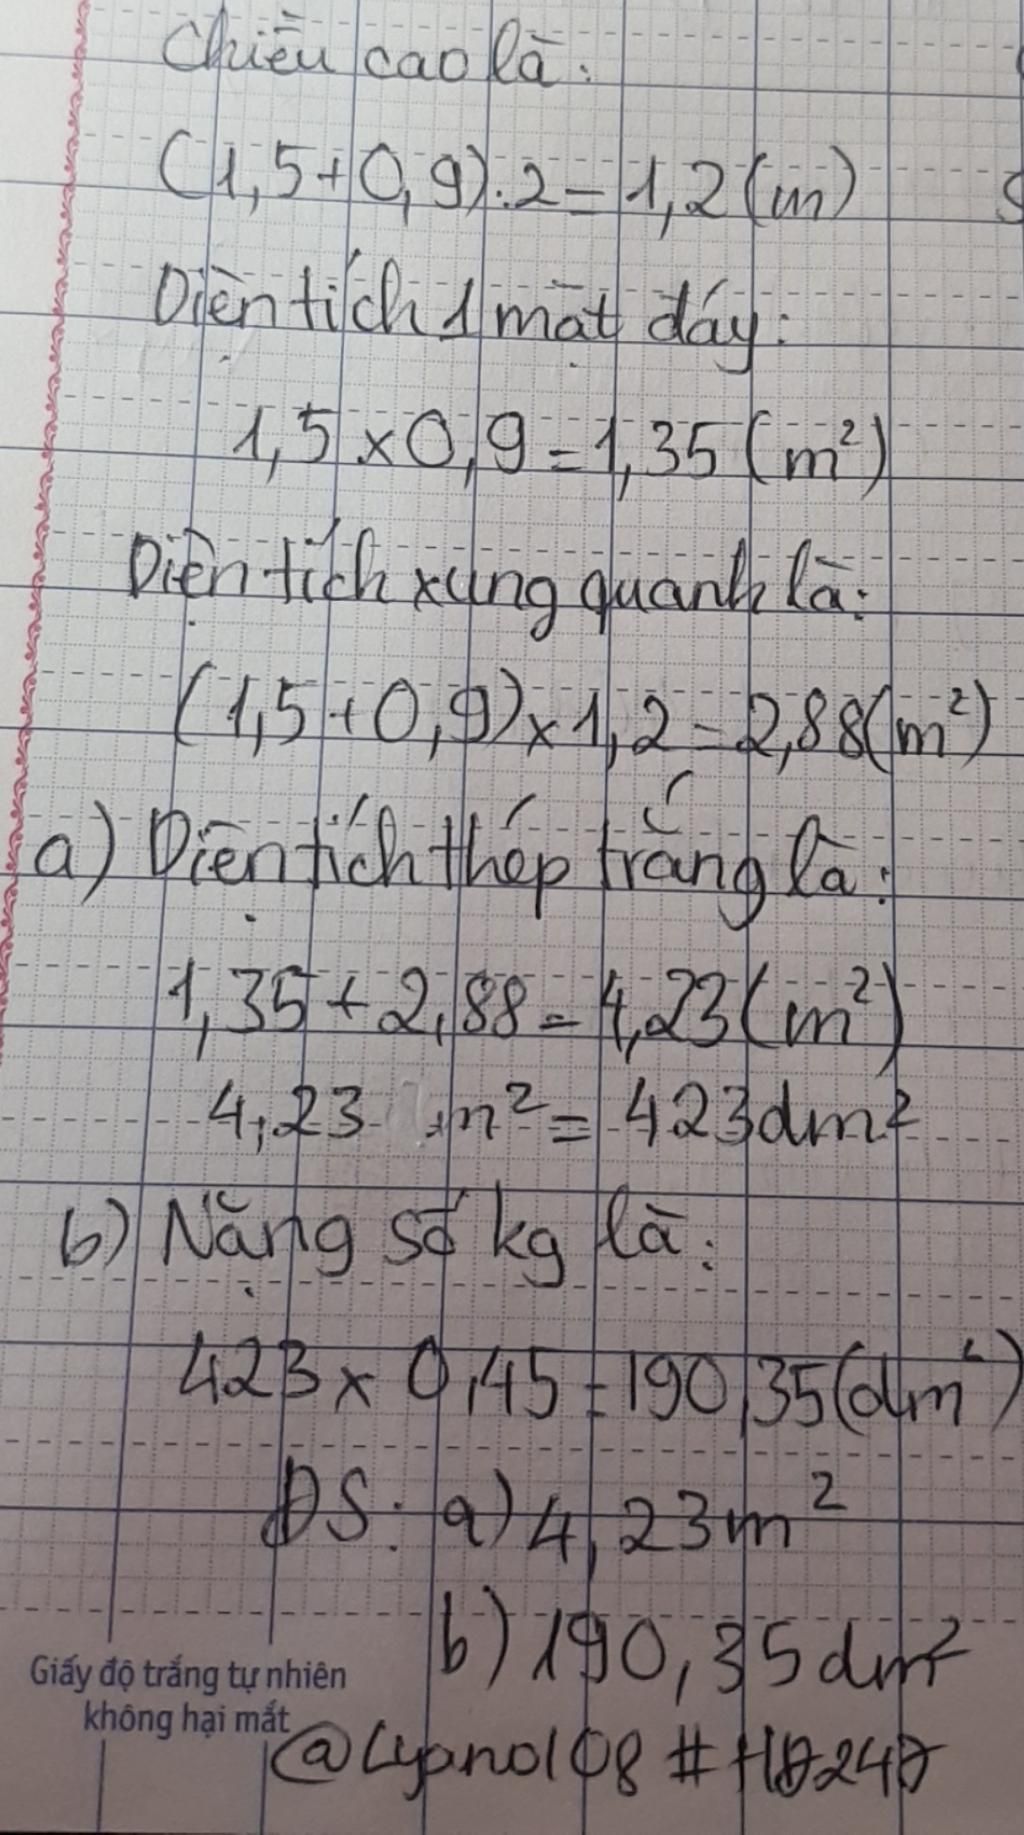 Chiều cao là:
(1,5+0,9):2=1,2(m)
Diện tích 1 mặt đáy:
1,5×0,9=1,35(m²)
Diện tích xung quanh là:
(1,5+0,9)×1,2=2,88(m²)
a) Diện tích thép trắng là:
1,35+2,88=4,23(m²)
4,23 m²=423dm²
b) Nặng số kg là:
423×0,45=190,35(dm²)
ĐS: a) 4,23m²
b) 190,35dm²
Giấy độ trắng tự nhiên
không hại mắt